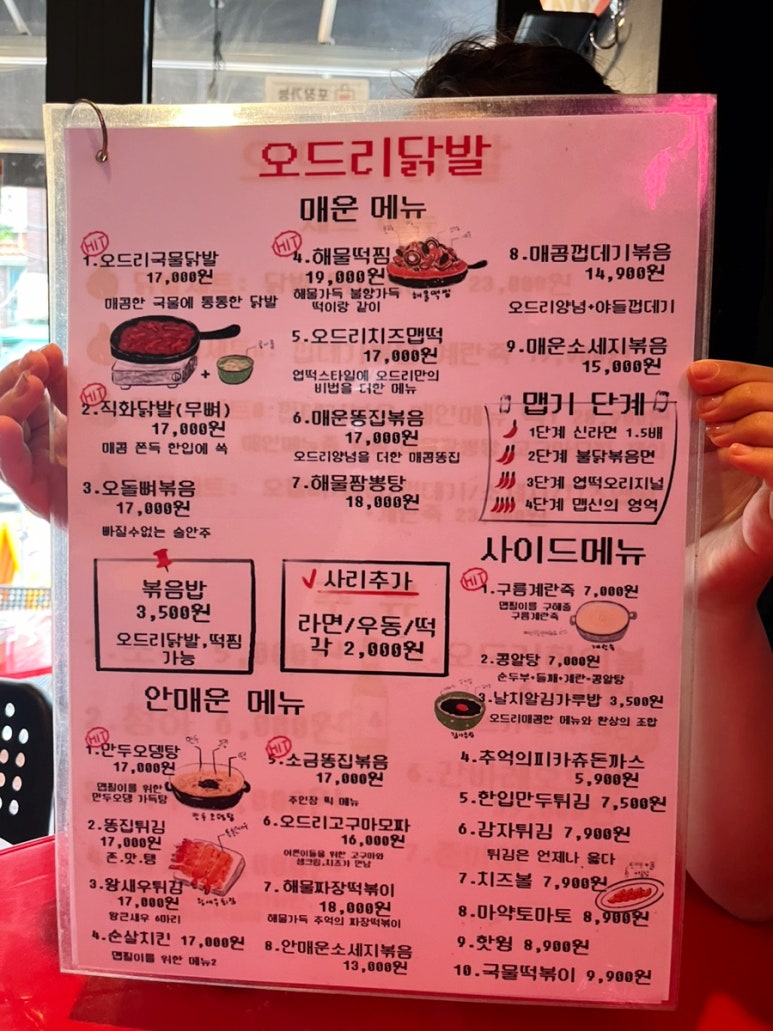 포장가능
오드리닭발
매운 메뉴
HIT
1.오드리국물닭발
17,000원
매콤한 국물에 통통한 닭발
HIT
2.직화닭발(무뼈)
17,000원
매콤 쫀득 한입에 쏙
3.오돌뼈볶음
17,000원
빠질수없는 술안주
HIT
4.해물떡찜
19,000원
해물가득 불향가득
떡이랑 같이
해물떡찜
5.오드리치즈맵떡
17,000원
업떡스타일에 오드리만의
비법을 더한 메뉴
6.매운똥집볶음
17,000원
오드리양념을 더한 매콤똥집
7.해물짬뽕탕
18,000원
8.매콤껍데기볶음
14,900원
오드리양념+야들껍데기
9.매운소세지볶음
15,000원
맵기 단계
1단계 신라면 1.5배
2단계 불닭볶음면
3단계 엽떡오리지널
4단계 맵신의 영역
볶음밥
3,500원
오드리닭발,떡찜
가능
사리추가
라면/우동/떡
각 2,000원
안매운 메뉴
HIT
1.만두오뎅탕
17,000원
맵찔이를 위한
만두오뎅 가득탕
만두오뎅탕
2.똥집튀김
17,000원
존.맛.탱
3.왕새우튀김
17,000원
왕큰새우 6마리
왕새우튀김
4.순살치킨 17,000원
맵찔이를 위한 메뉴2
HIT
5.소금똥집볶음
17,000원
주인장 픽 메뉴
6.오드리고구마모짜
16,000원
어른이들을 위한 고구마와
생크림,치즈가 만남
7.해물짜장떡볶이
18,000원
해물가득 추억의 짜장떡볶이
8.안매운소세지볶음
13,000원
사이드메뉴
HIT
1.구름계란죽 7,000원
맵찔이를 구해줄
구름계란죽
계란죽
2.콩알탕 7,000원
순두부+들깨+계란=콩알탕
3.날치알김가루밥 3,500원
오드리매콤한 메뉴와 환상의 조합
4.추억의피카츄돈까스
5,900원
5.한입만두튀김 7,500원
6.감자튀김 7,900원
튀김은 언제나 옳다
7.치즈볼 7,900원
8.마약토마토 8,900원
9.핫윙 8,900원
10.국물떡볶이 9,900원